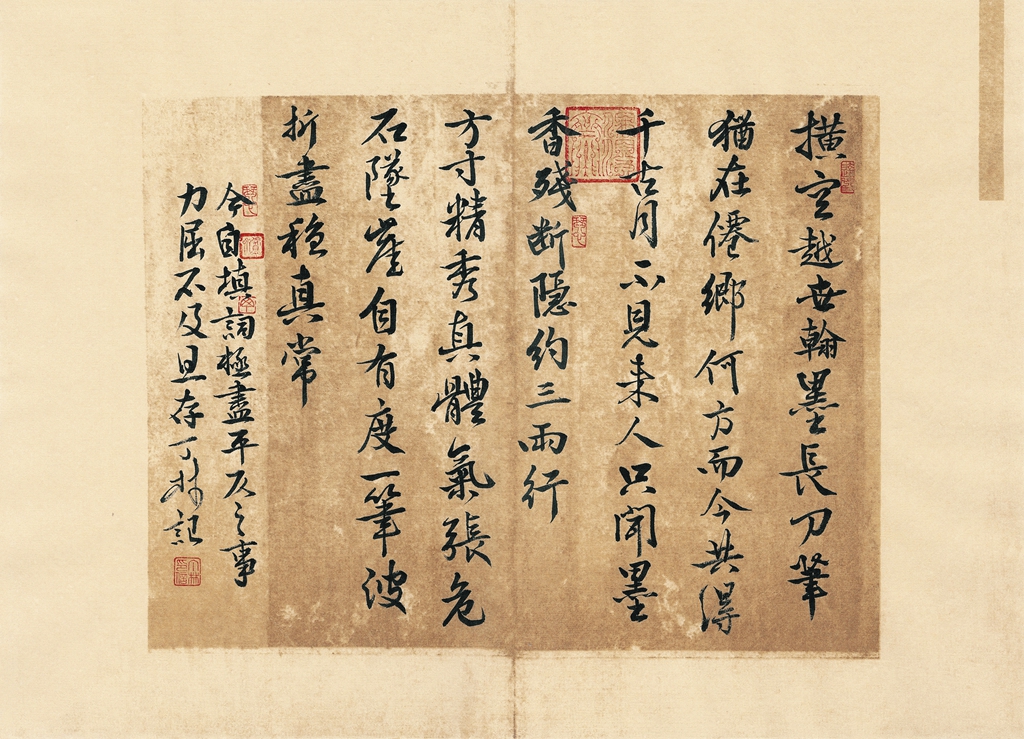 横空越世翰墨長刀筆
猶在僊鄉何方而今共得
千古月不見来人只聞墨
香殘断隱約三兩行
方寸精秀真體氣張危
石墜崖自有度一筆波
折盡穩真常
今自填詞極盡平仄之事
力屈不及且存丁林記